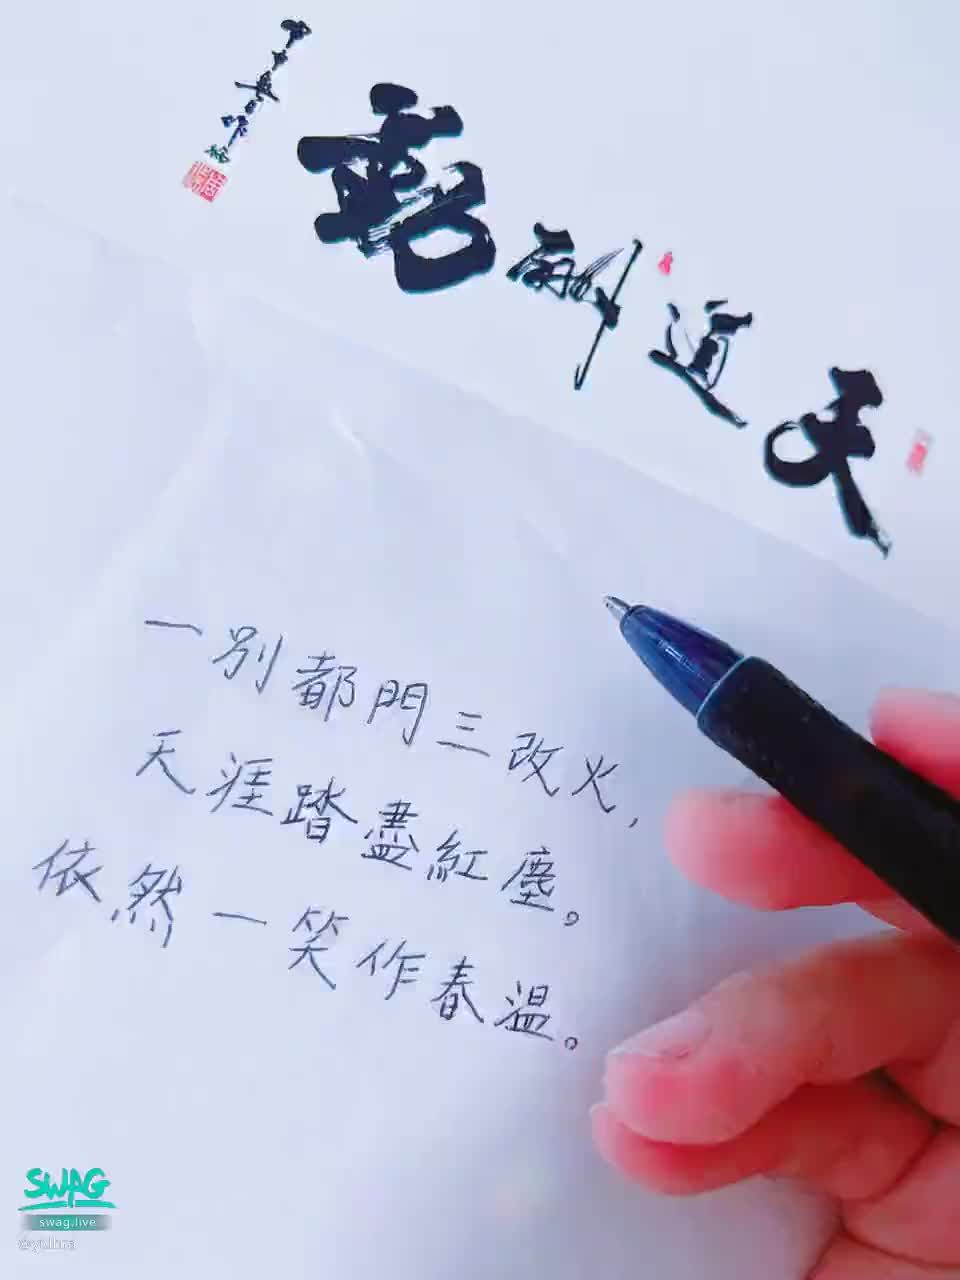 天道酬勤
一別都門三改火，
天涯踏盡紅塵。
依然一笑作春溫。
SWAG
swag.live